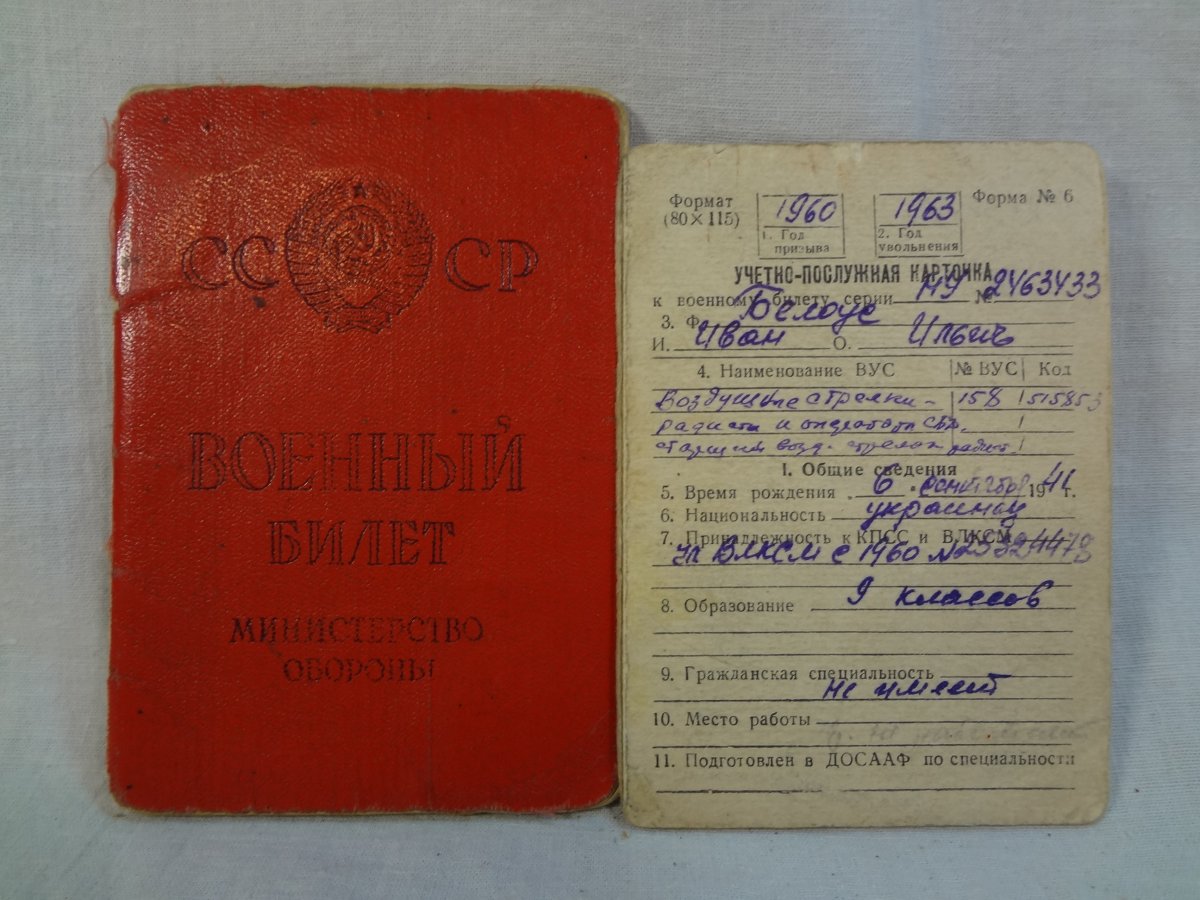 СССР
ВОЕННЫЙ
БИЛЕТ
МИНИСТЕРСТВО
ОБОРОНЫ
Формат 1960 1963 Форма № 6
(80×115) 1. Год 2. Год
призыва увольнения
УЧЕТНО-ПОСЛУЖНАЯ КАРТОЧКА
к военному билету серии НУ № 2463433
3. Ф. Белоус
И. Иван О. Ильич
4. Наименование ВУС № ВУС Код
Воздушные стрелки- 158 515853
радисты и операторы
старший возд. стрелок радист
I. Общие сведения
5. Время рождения 6 сентября 1941 г.
6. Национальность украинец
7. Принадлежность к КПСС и ВЛКСМ
чл ВЛКСМ с 1960 №
8. Образование 9 классов
9. Гражданская специальность
не имеет
10. Место работы
11. Подготовлен в ДОСААФ по специальности